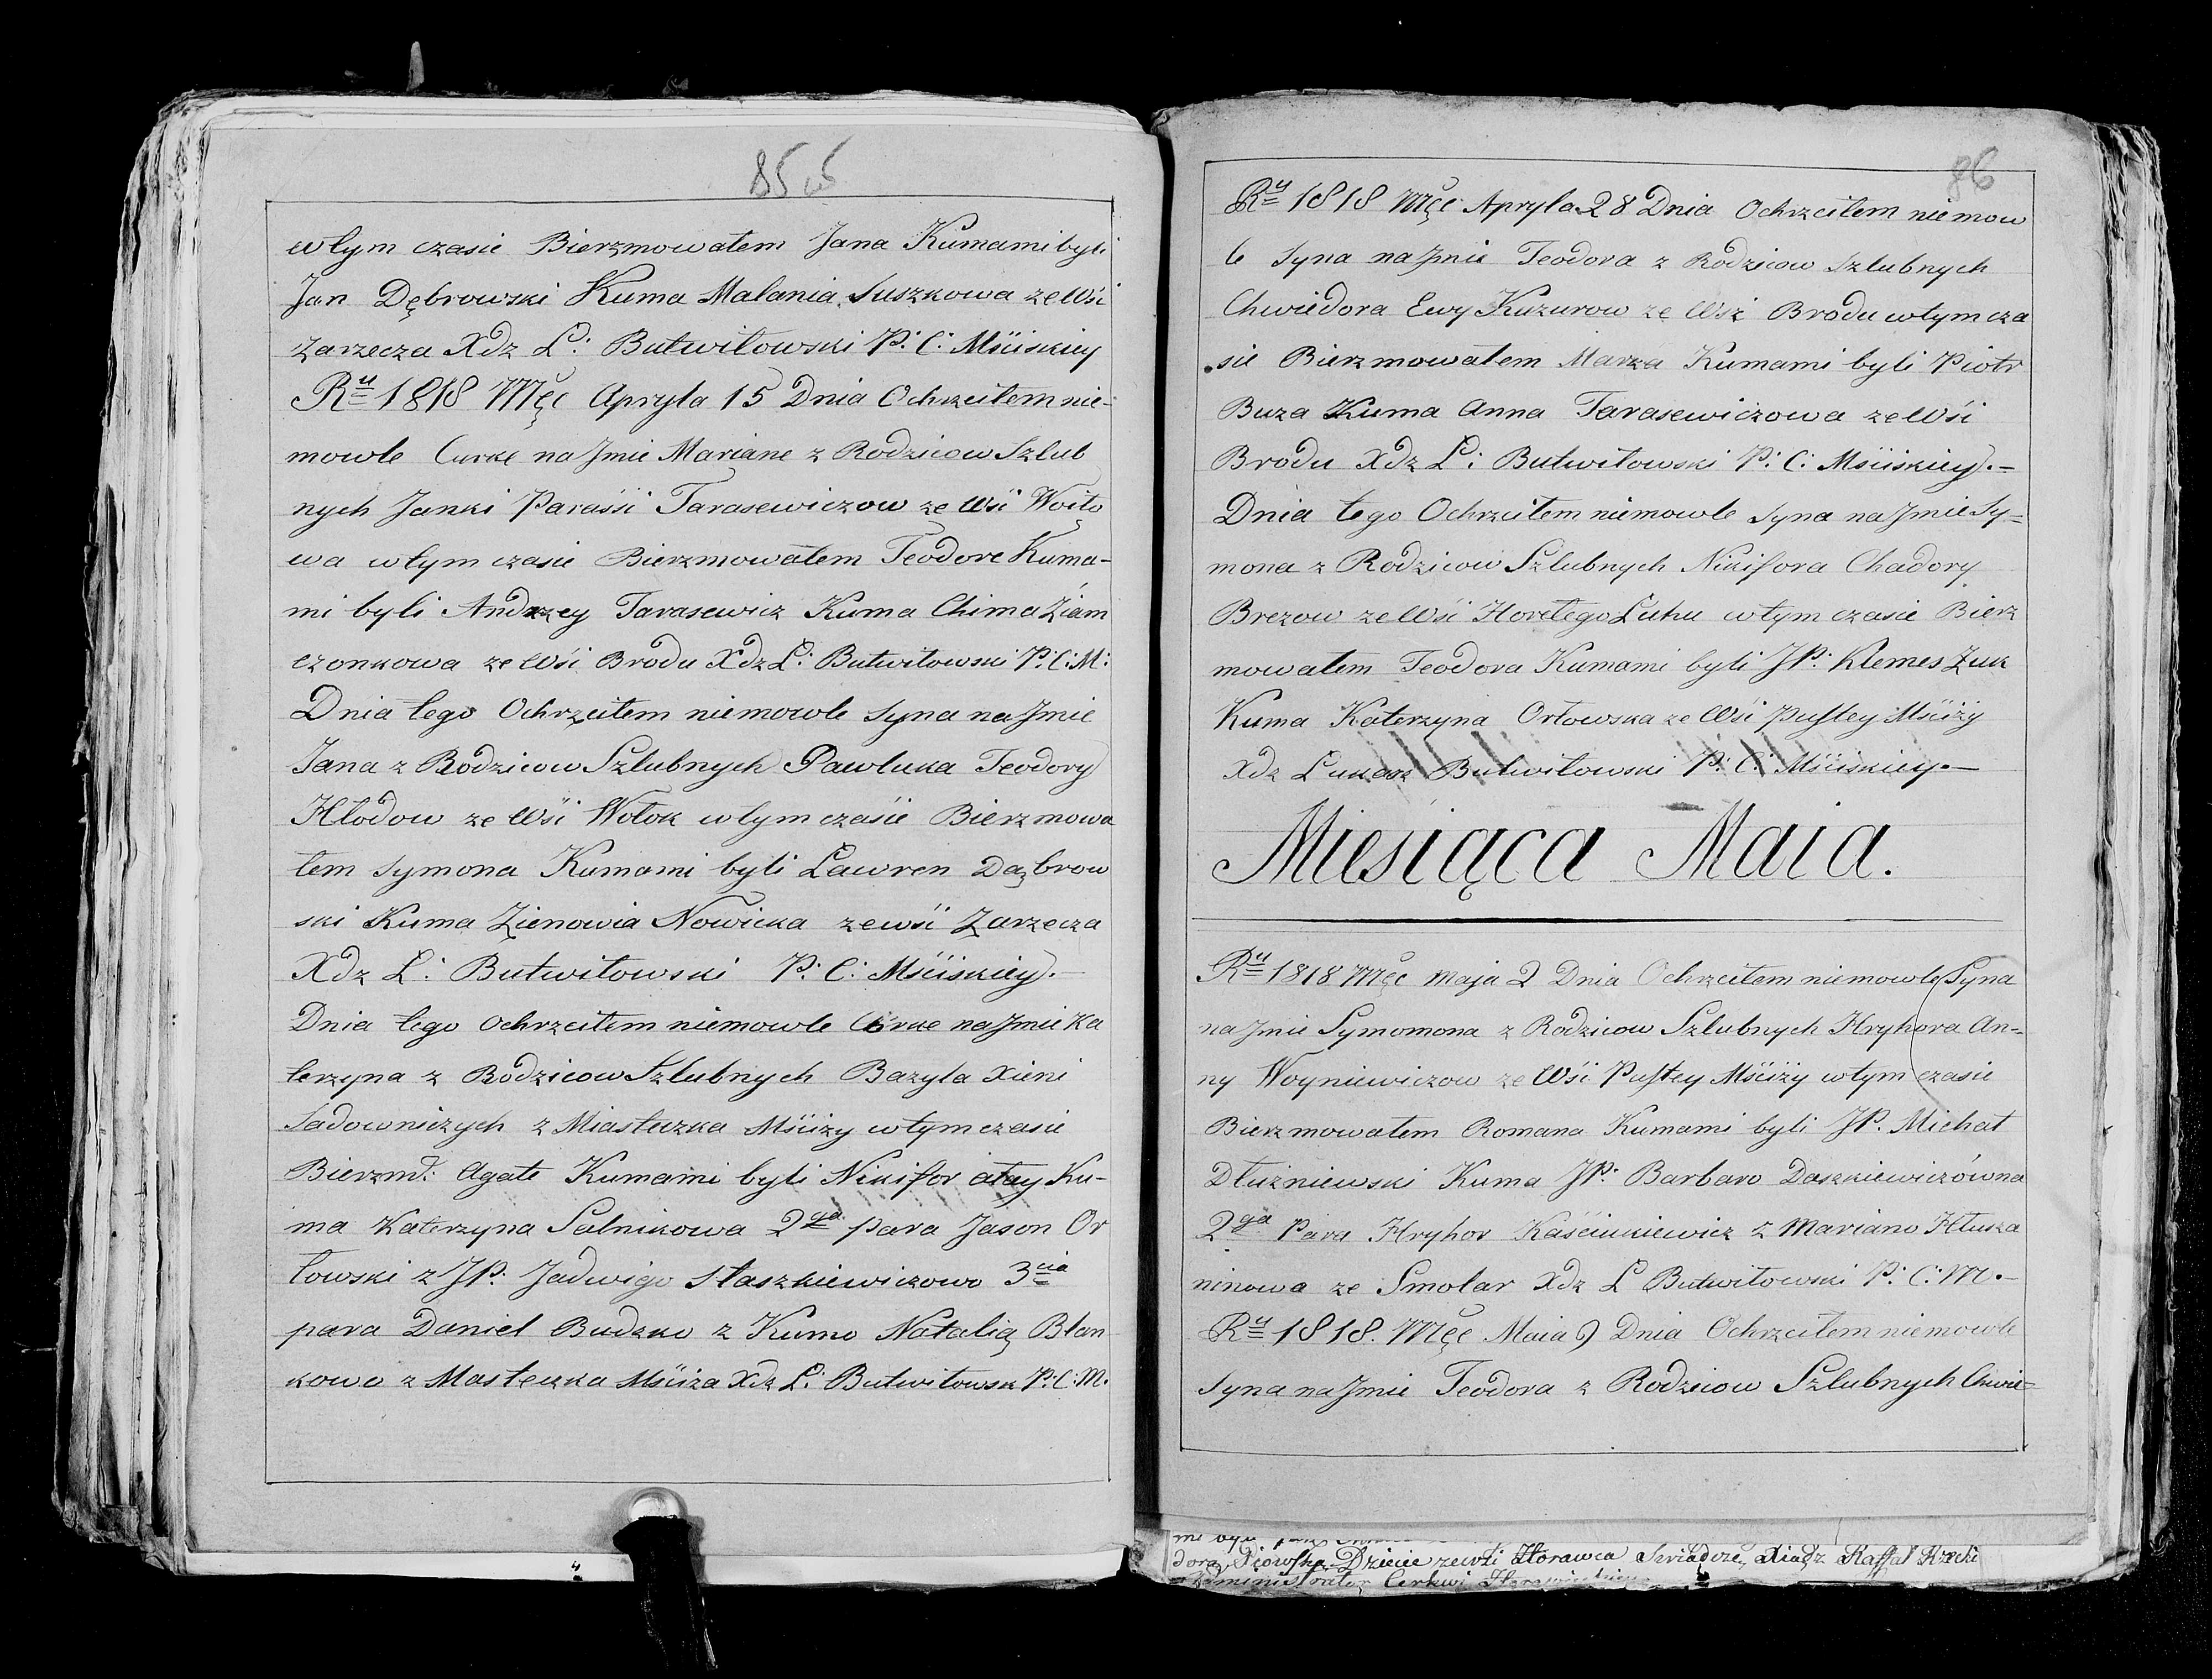 85
wtym czasie Bierzmowałem Jana Kumami byli
Jan Dębrowski Kuma Malania Suszkowa ze Wsi
Zarzecza Xdz Ł: Butwiłowski P: C: Mściskiey
Ru 1818 Mςc Apryla 15 Dnia Ochrzciłem nie-
mowle Curke na Jmie Mariane z Rodzicow Szlub
nych Janki Parasii Tarasewiczow ze Wsi Woito
wa wtym czasie Bierzmowałem Teodore Kuma-
mi byli Andrzey Tarasewicz Kuma Chima Ziam
czonkowa ze Wsi Brodu Xdz Ł: Butwiłowski P: C: M:
Dnia tego Ochrzciłem niemowle Syna na Jmie
Jana z Rodzicow Szlubnych Pawluka Teodory
Hłodow ze Wsi Wołok wtym czasie Bierzmowa
łem Symona Kumami byli Ławren Dąbrow
ski Kuma Zienowia Nowicka zewsi Zarzecza
Xdz Ł: Butwiłowski P: C: Mściskiey.
Dnia tego ochrzciłem niemowle Córke na Jmie Ka
terzyna z Rodzicow Szlubnych Bazyla Xieni
Sadowniczych z Miasteczka Mściży wtym czasie
Bierzmł: Agate Kumami byli Nikifor Ku-
ma Katerzyna Salnikowa 2ga para Jason Or
łowski z JP: Jadwigo Staszkiewiczowo 3cia
para Daniel Budzko z Kumo Natalią Blan
kowo z Masteczka Mściża Xdz Ł: Butwiłowsk P: C: M.
86
Ru 1818 Mςc Apryla 28 Dnia Ochrzciłem niemow
le Syna na Jmie Teodora z Rodzicow Szlubnych
Chwiedora Ewy Kuzurow ze Wsi Brodu wtym cza
sie Bierzmowałem Marka Kumami byli Piotr
Buza Kuma Anna Tarasewiczowa ze Wsi
Brodu Xdz Ł: Butwiłowski P: C: Mściskiey.-
Dnia tego Ochrzciłem niemowle Syna na Jmie Sy=
mona z Rodzicow Szlubnych Nikifora Chadory
Brezow ze Wsi Horełego Łuhu wtym czasie Bierz
mowałem Teodora Kumami byli JP: Klemes Żuk
Kuma Katerzyna Orłowska ze Wsi Pustey Mściży
Xdz Łukasz Butwiłowski P: C: Mściskiey.-
Miesiąca Maia.
Ru 1818 Mςc Maja 2 Dnia Ochrzciłem niemowle Syna
na Jmie Symomona z Rodzicow Szlubnych Hryhora An=
ny Woyniewiczow ze Wsi Pustey Mściży wtym czasie
Bierzmowałem Romana Kumami byli JP. Michał
Dłużniewski Kuma JP: Barbaro Daszkiewiczówna
2ga Para Hryhor Kaściukiewicz z Mariano Hłuska
ninowa ze Smolar Xdz Ł Butwiłowski P: C: M.-
Ru 1818. Mςc Maia 9 Dnia Ochrzciłem niemowle
Syna na Jmie Teodora z Rodzicow Szlubnych Chwie=
mi byli
dora Dziecie zewsi Horawca Swiadcze, Xiądz Raffał Rzecki
Administrator Cerkwi